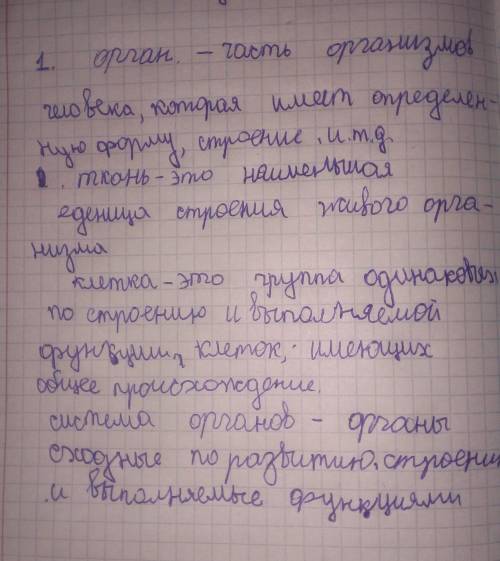 1. орган. - часть организмов
человека, которая имеет определен-
ную форму, строение. и.т.д.
. ткань-это наименьшая
еденица строения живого орга-
низма
клетка-это группа одинаковых
по строению и выполняемой
функции, клеток, имеющих
общее происхождение.
система органов - органы
сходные по развитию, строению
и выполняемые функциями